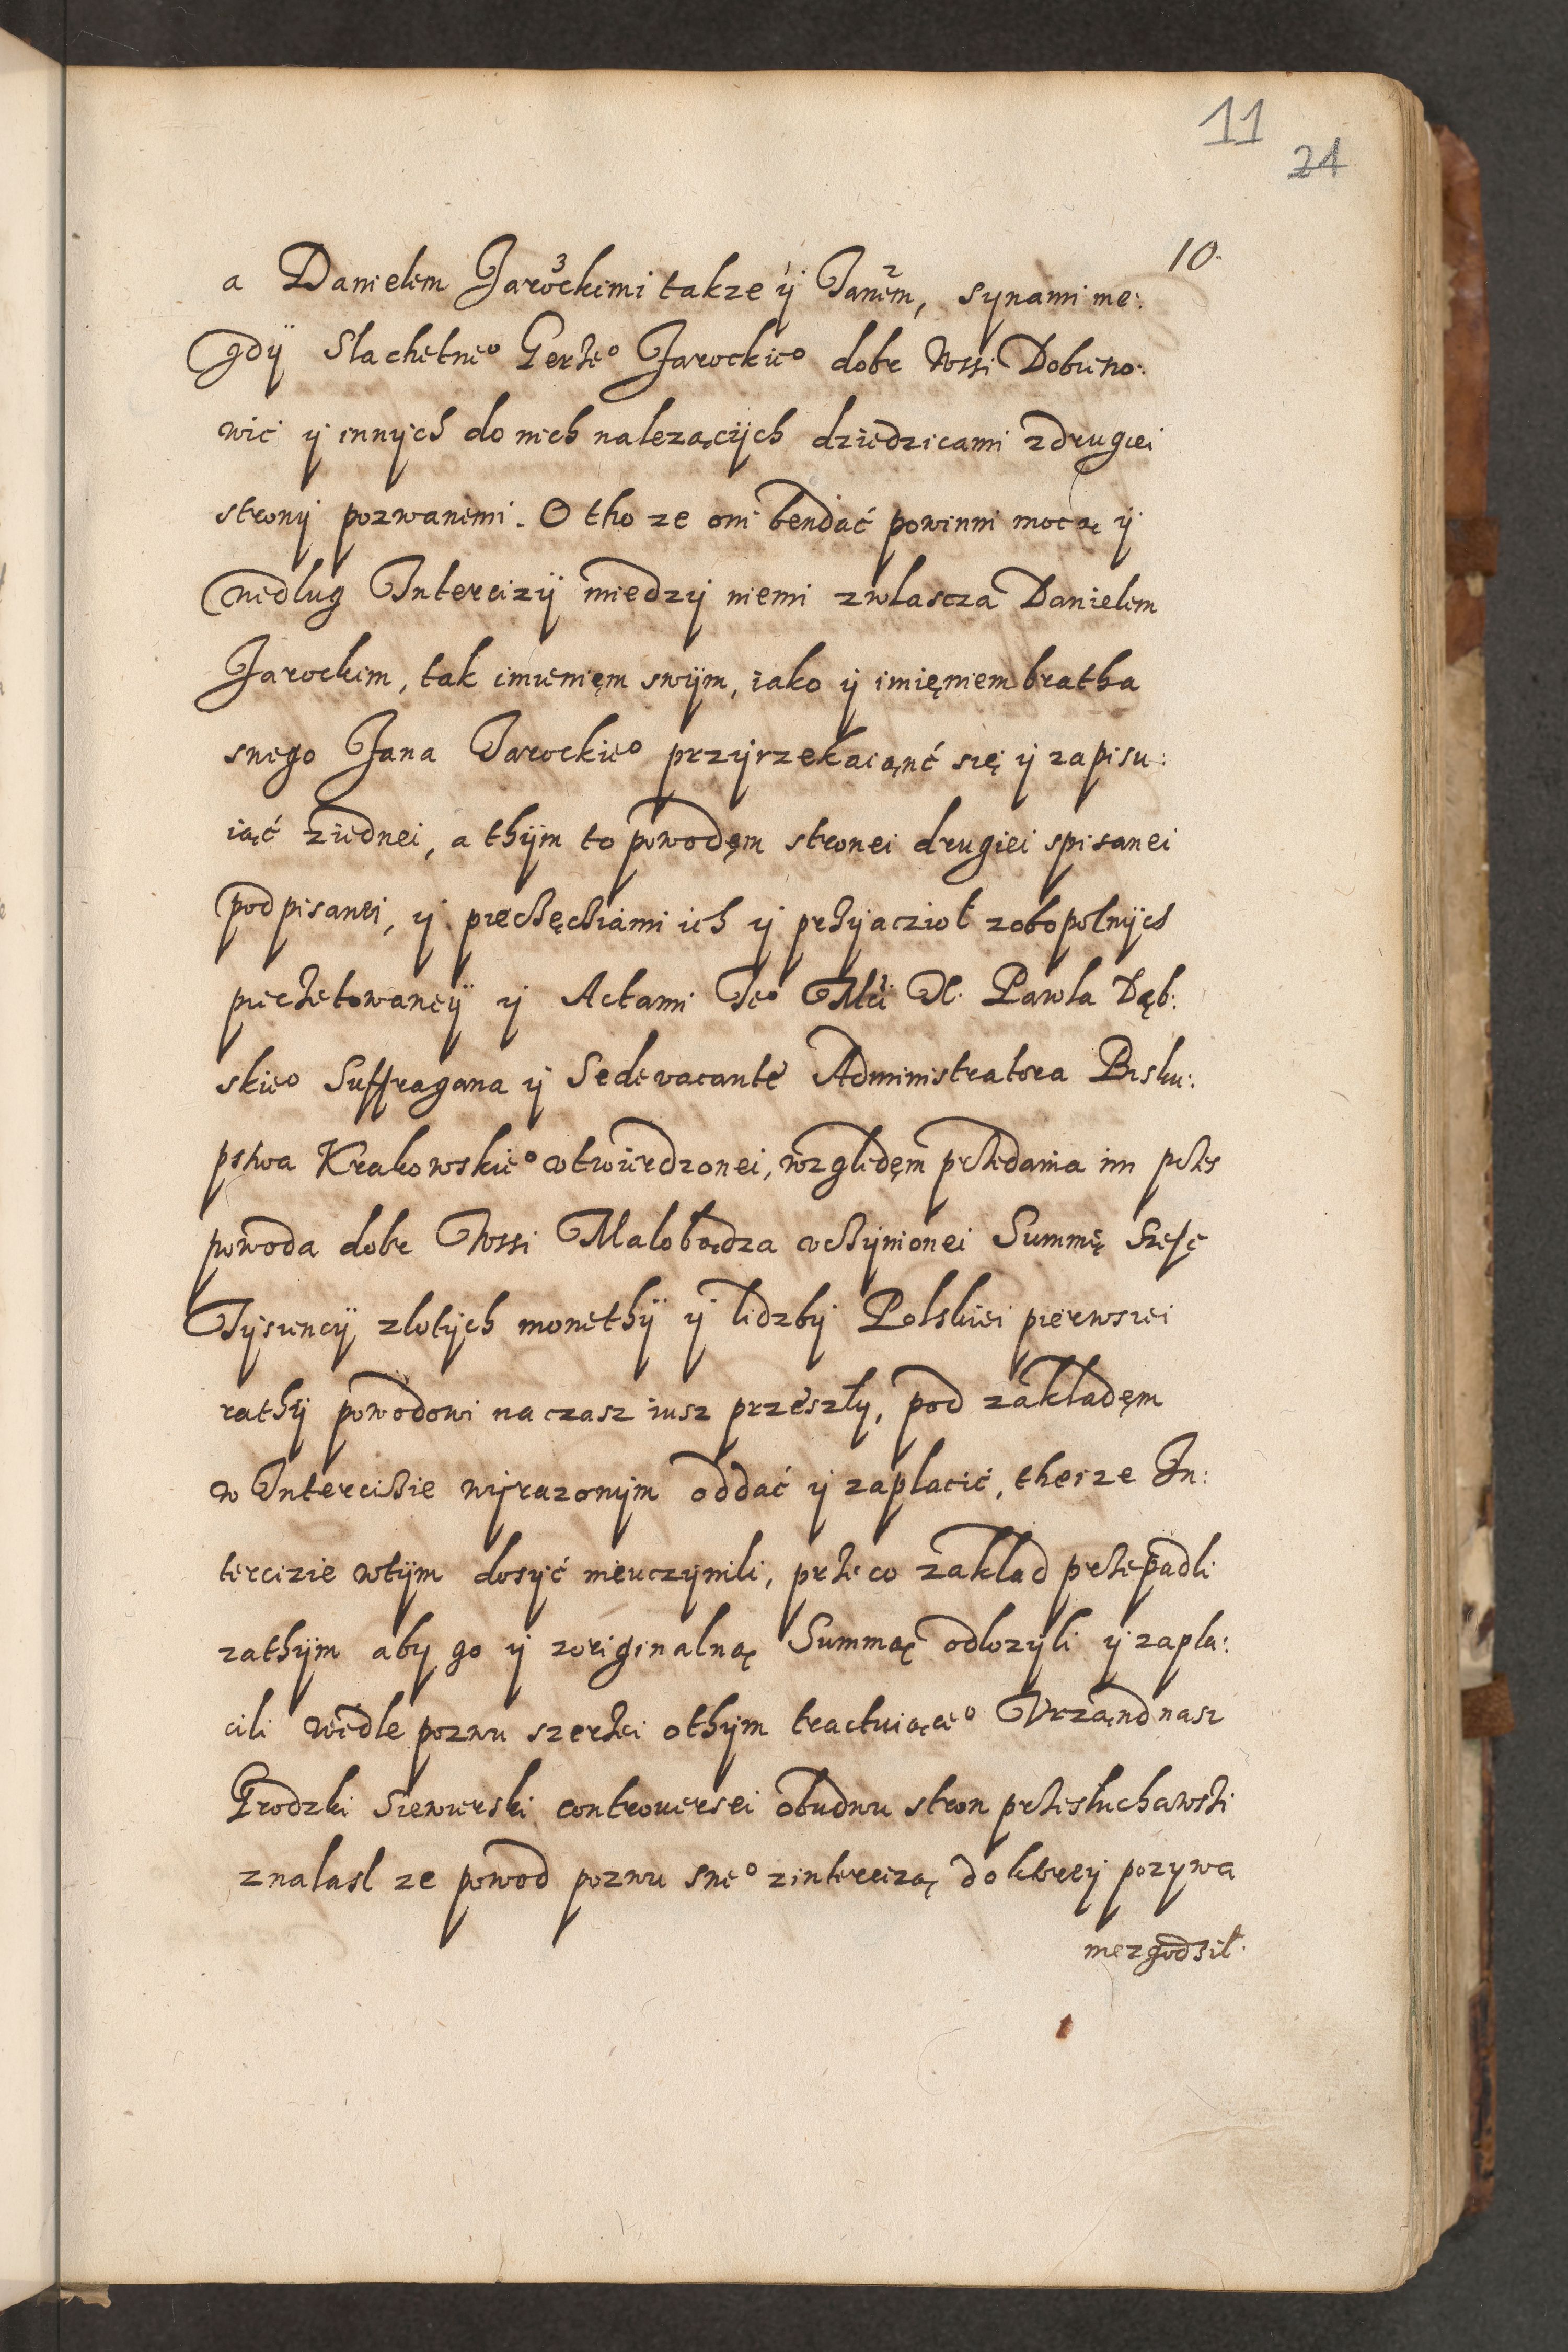 11
24
10.
a Danielem Jarockiemi takze ÿ Janem, synami nie:
gdÿ Slachetneo Gerżeo Jarockieo dobr Wssi Dobieszo:
wic ÿ innÿch do nich nalezącÿch dziedzicami z drugiei
stronÿ pozwanemi. O tho ze oni bendać powinni mocą ÿ
wedlug Intercizÿ miedzÿ niemi zwlascza Danielem
Jarockim, tak imienięm swÿm, iako ÿ imięniem bratha
swego Jana Jarockieo przÿrzekaiąnć się ÿ zapisu:
iąć ziednei, a thÿm to powodęm stronei drugiei spisanei
podpisanei, ÿ pieczęcziami ich ÿ przÿaczioł zobopolnÿch
pieczetowaneÿ ÿ Actami Jeo Mći X. Pawla Dęb:
skieo Suffragana ÿ Sede vacante Administratora Bisku:
pstwa Krakowskieo utwierdzonei, względęm przedania im przes
powoda dobr Wssi Malobądza uczÿnionei Summę Szesc
Tÿsiencÿ zlotÿch monethÿ ÿ lidzbÿ Polskiei pierwszei
rathÿ powodowi na czasz iusz przeszły, pod zakladęm
w Intercizie wÿrazonÿm oddać ÿ zaplacić, theize In:
tercizie wtÿm dosÿć nieuczynili, przeco zaklad przepadli
zathÿm aby go ÿ zoriginalną Summą odlozÿli ÿ zapla:
cili wedle pozwu szerzei othÿm tractuiąceo Vrząnd nasz
Grodzki Siewierski controversei obudwu stron przesłuchawszi
znalasl ze powod pozwu sweo zintercizą do ktoreÿ pozÿwa
niezgodził.